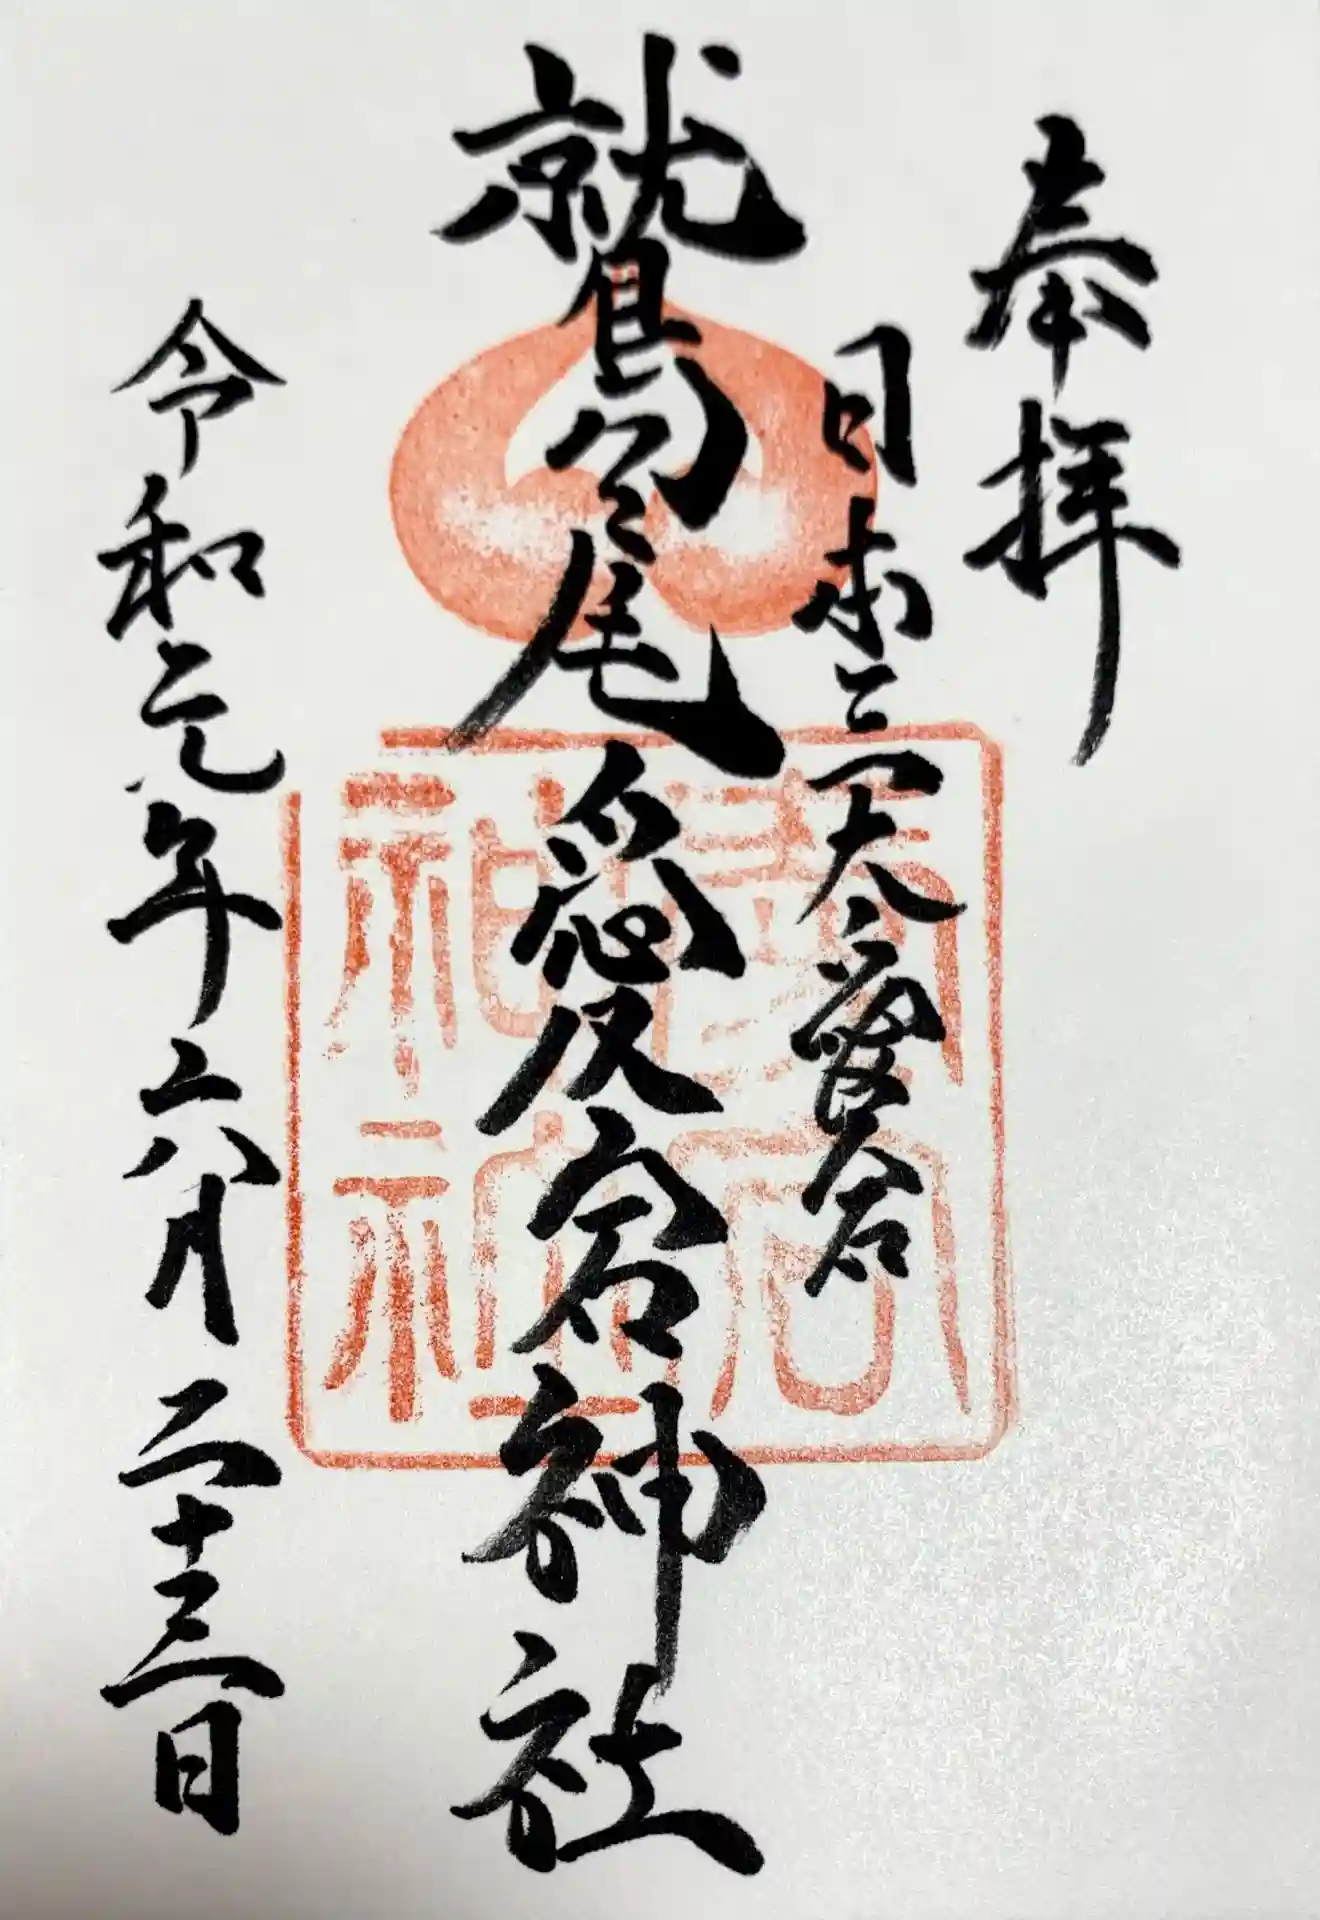 奉拝
日本三大愛宕
鷲尾愛宕神社
令和元年六月二十三日
愛宕神社